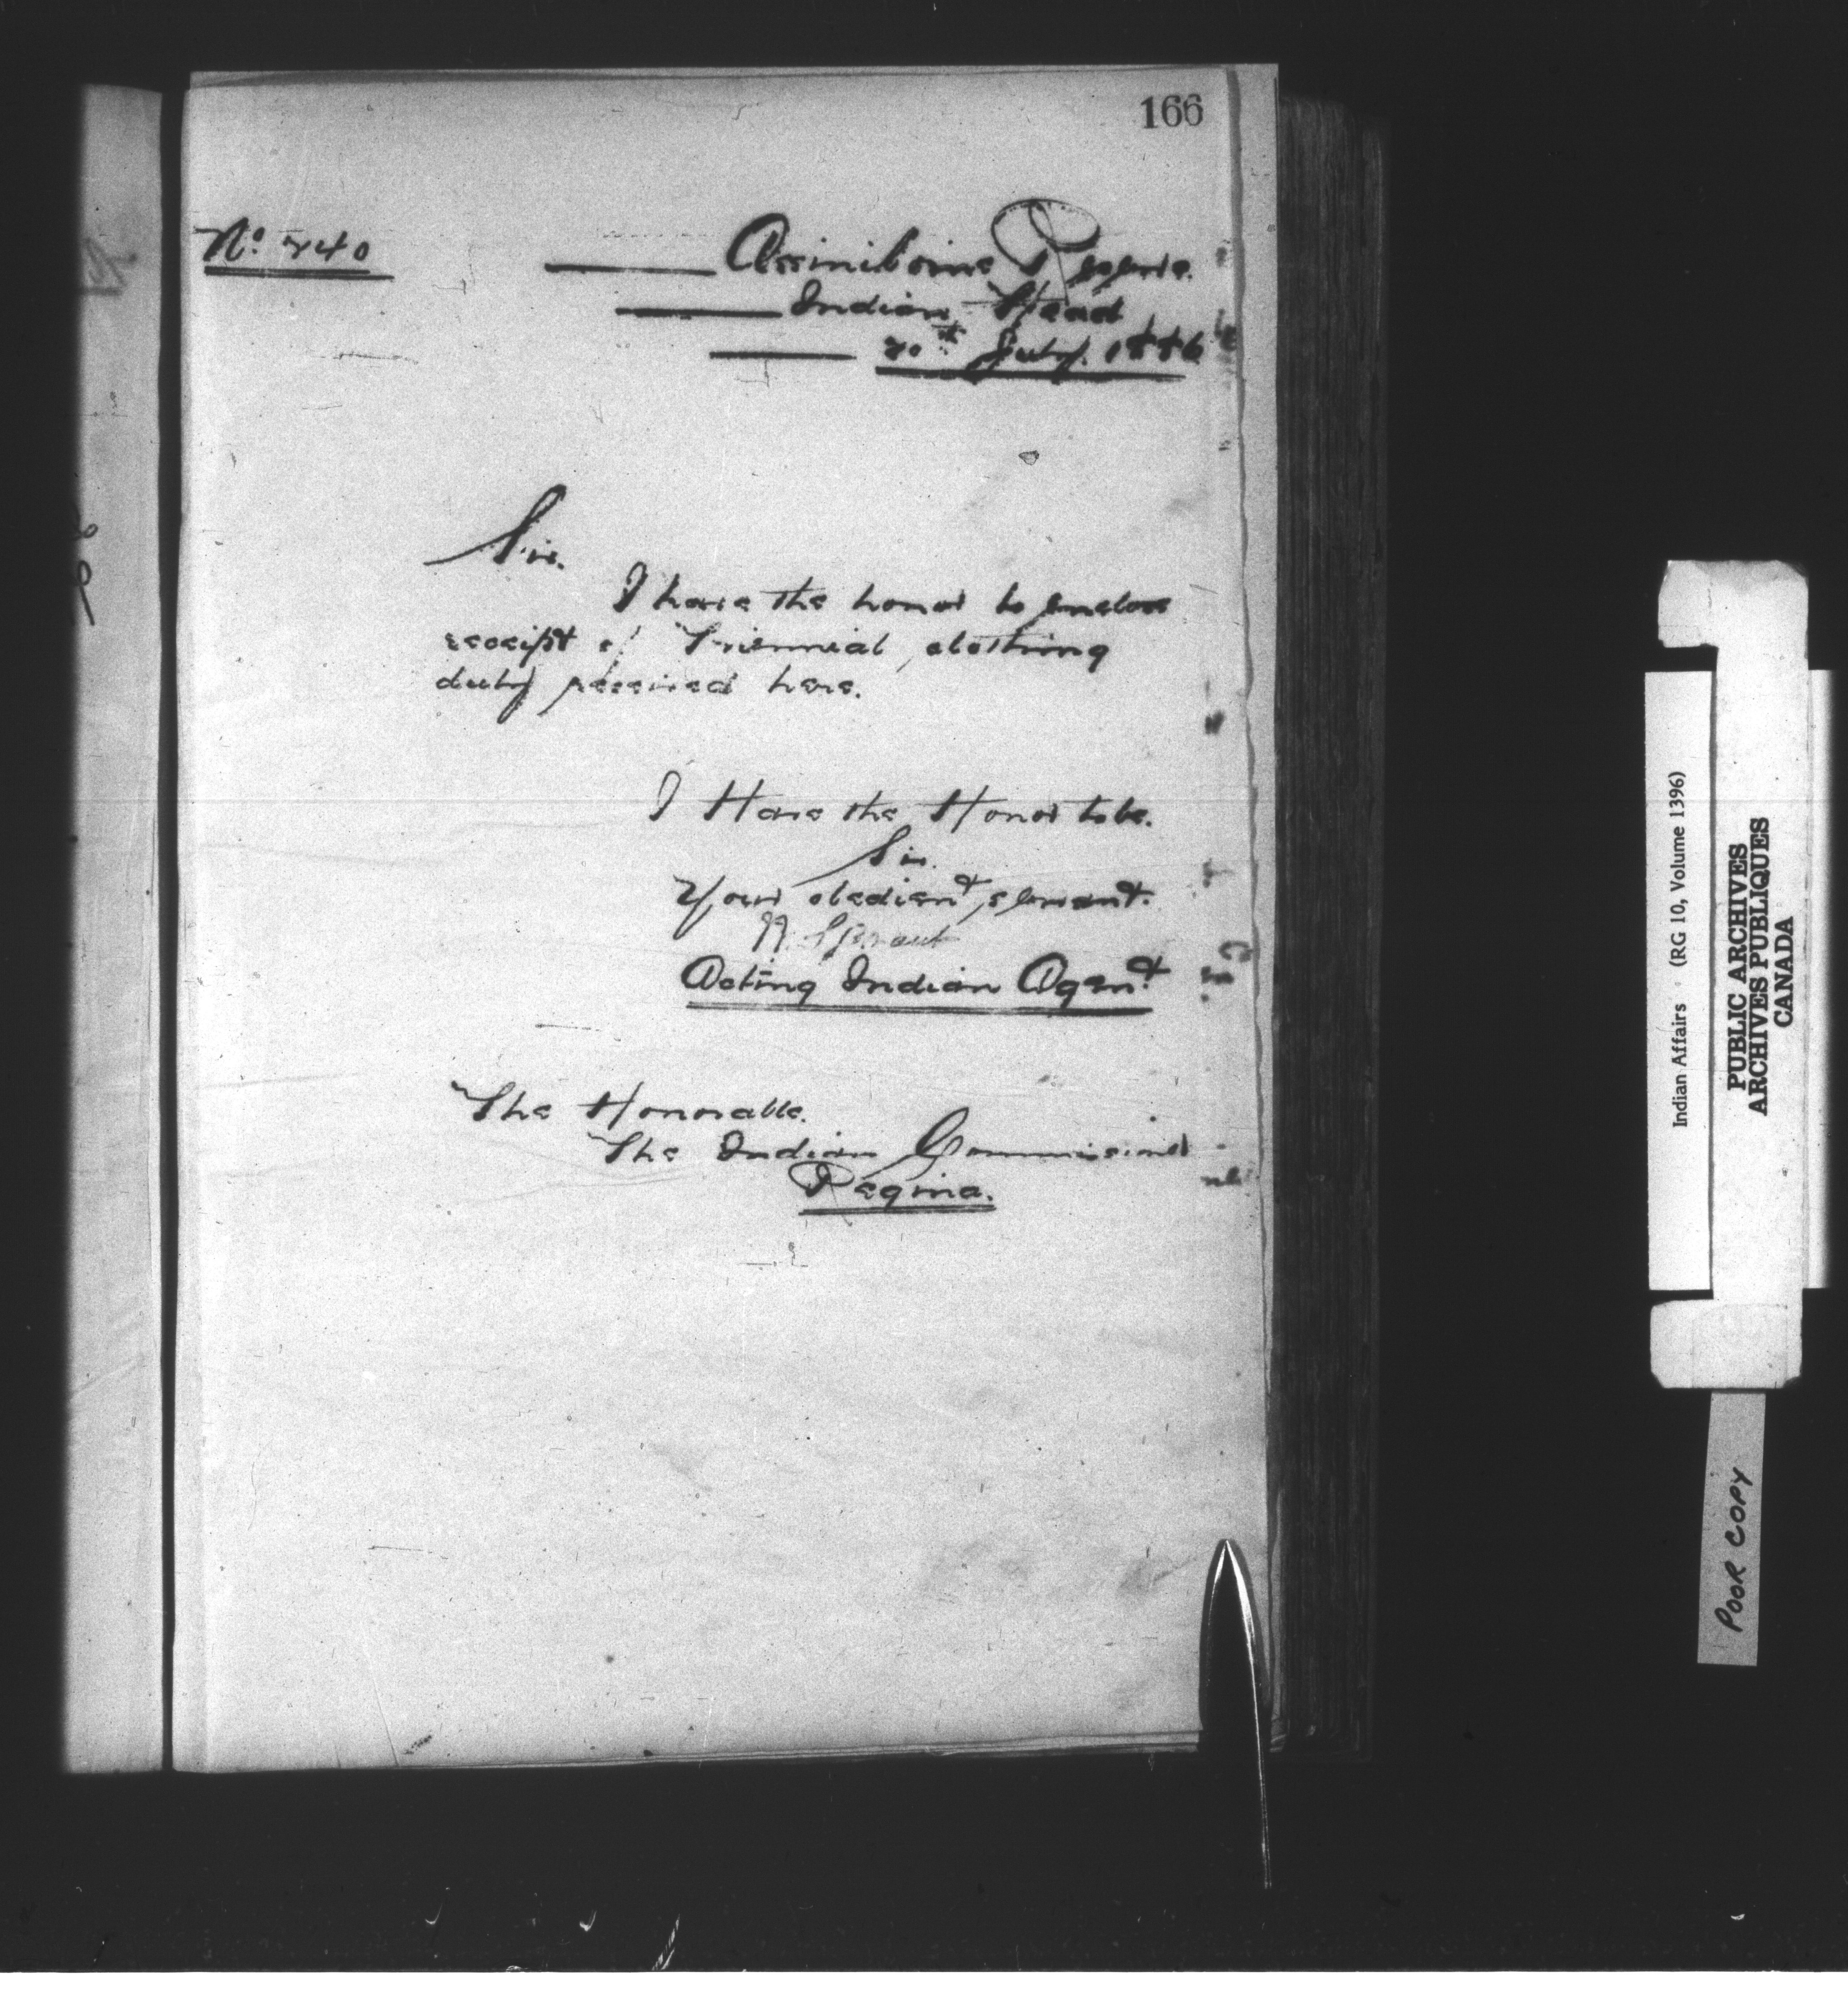 166
No. 240
Assiniboine Reserve.
Indian Head
20th July. 1886
Sir.
I have the honor to enclose
receipt of Triennial, clothing
duly received here.
I Have the Honor to be.
Sir.
Your obedient, servant.
Acting Indian Agent
The Honorable.
The Indian Commissioner
Regina.
Indian Affairs (RG 10, Volume 1396)
PUBLIC ARCHIVES
ARCHIVES PUBLIQUES
CANADA
POOR COPY